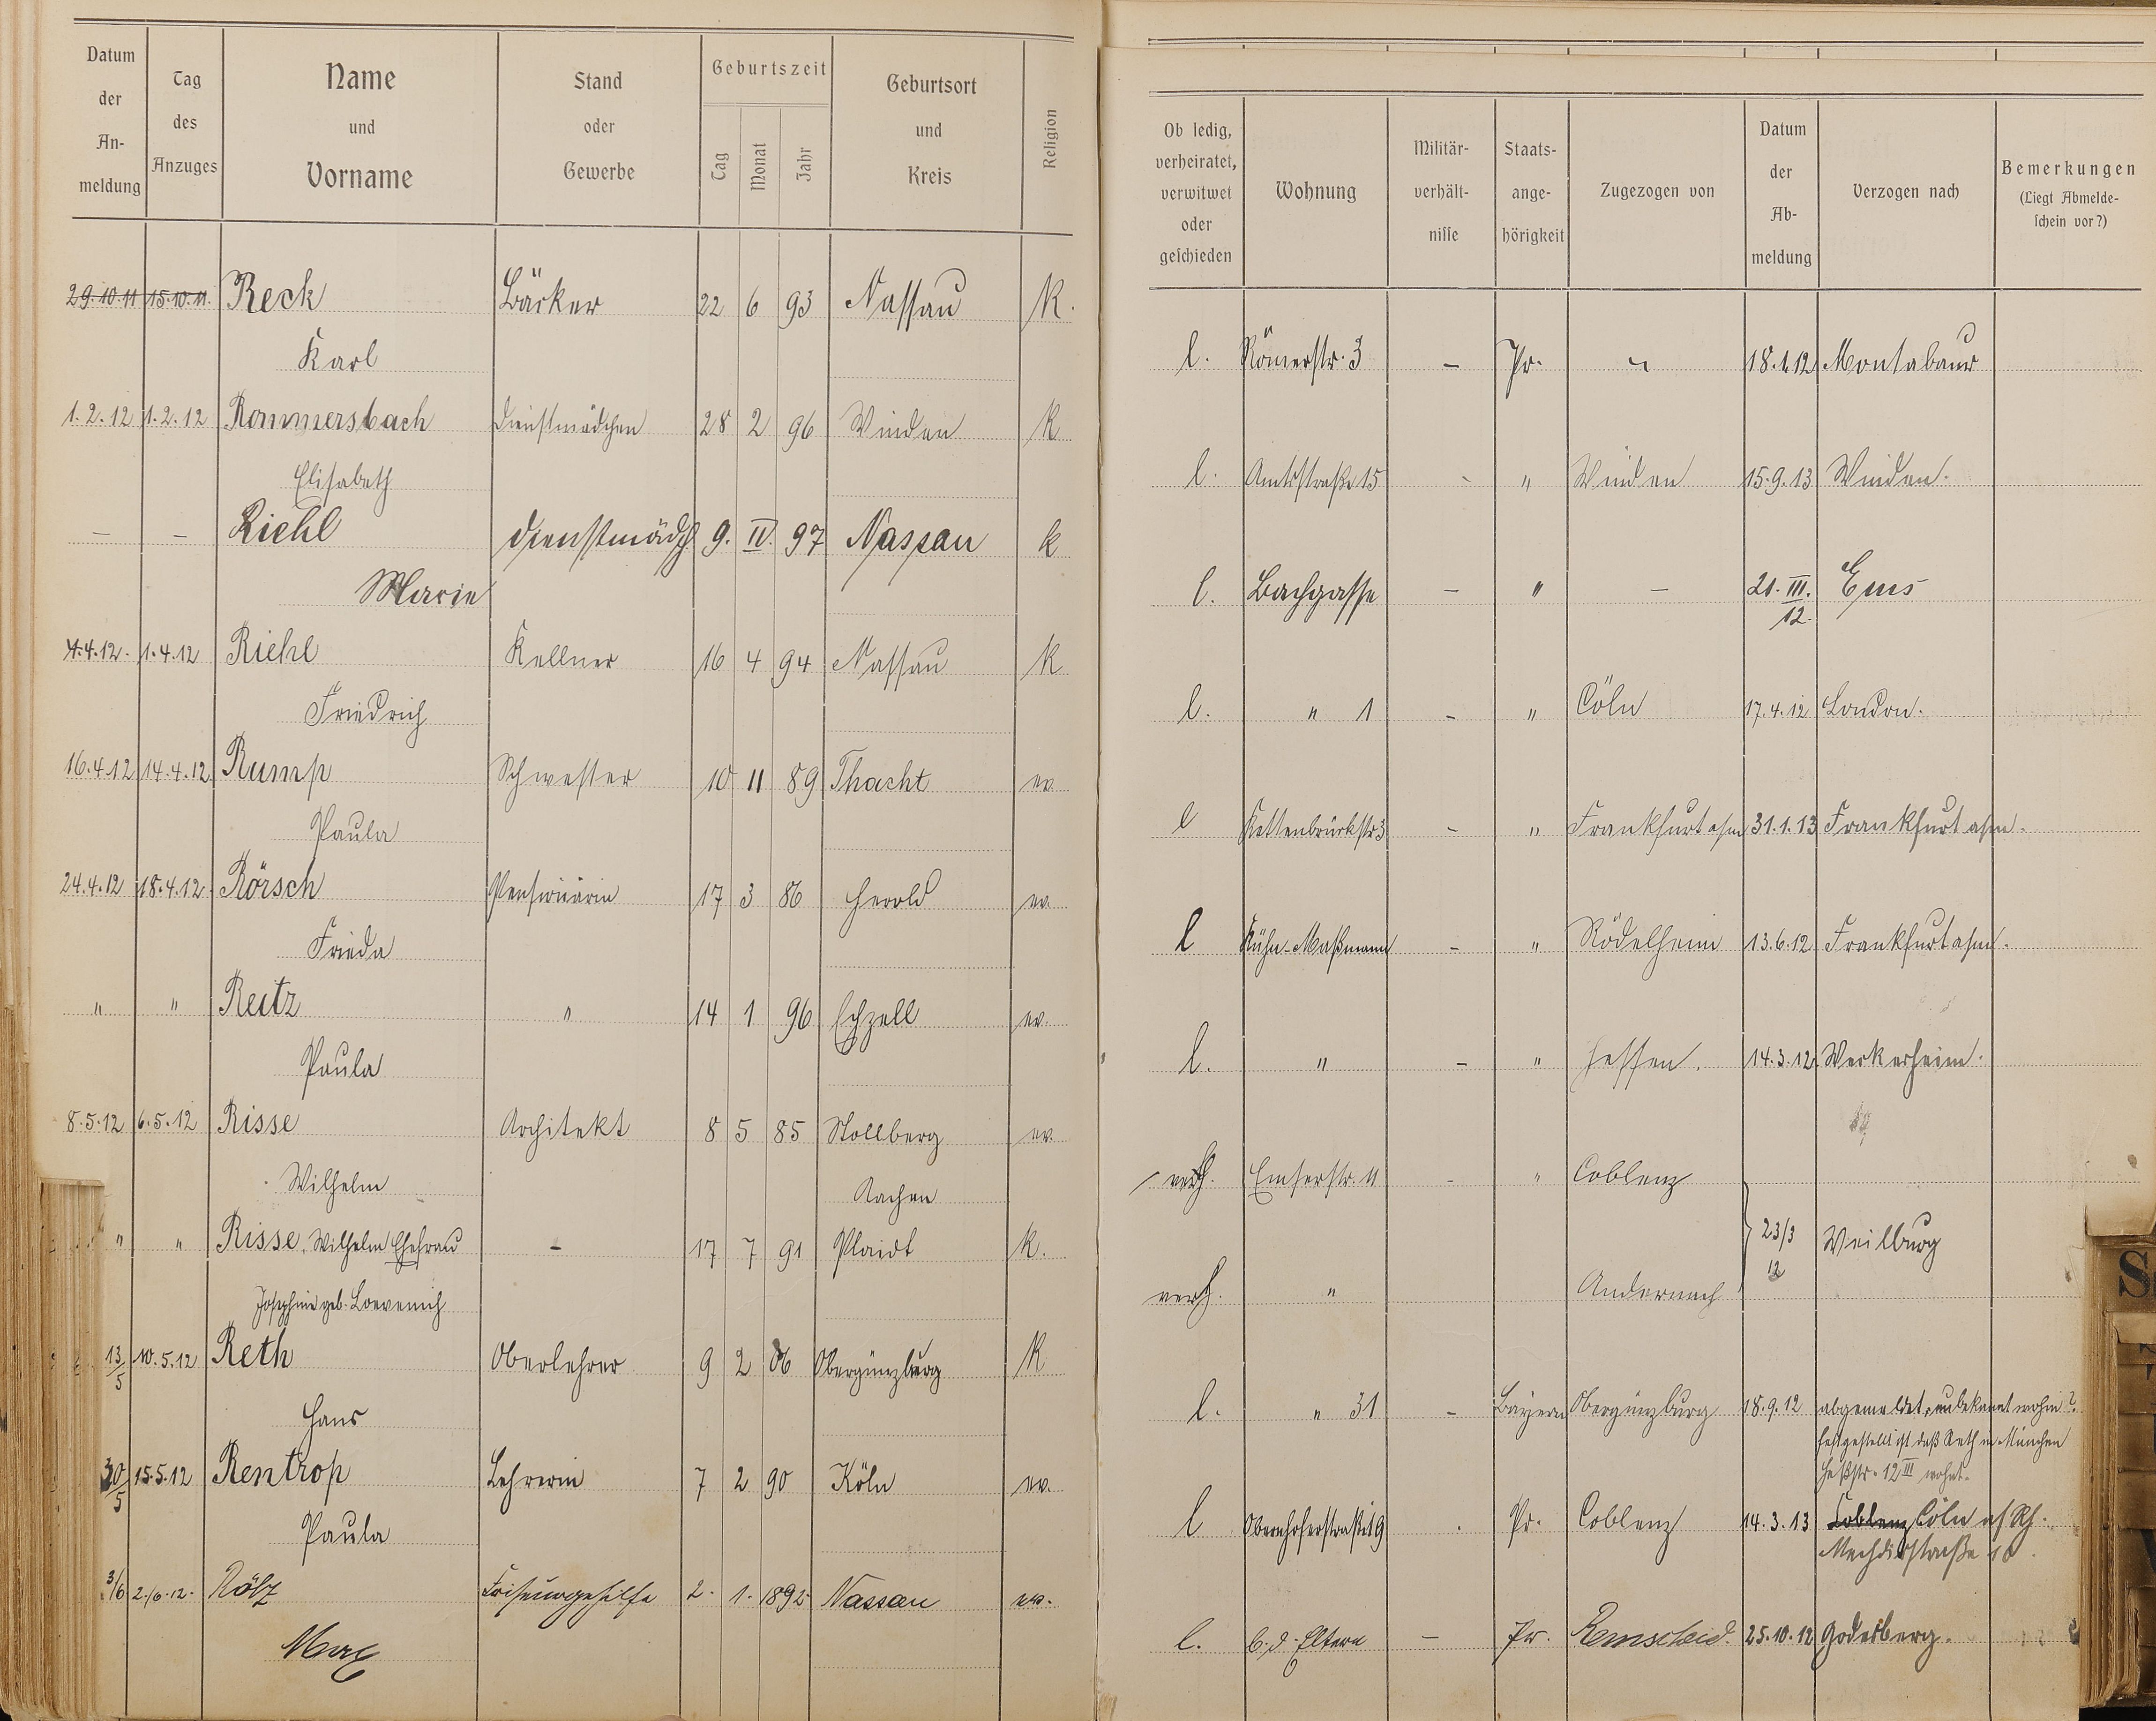 Datum der An-meldung | Tag des Anzuges | Name und Vorname | Stand oder Gewerbe | Geburtszeit Tag Monat Jahr | Geburtsort und Kreis | Religion | Ob ledig, verheiratet, verwitwet oder geschieden | Wohnung | Militär-verhält-nisse | Staats-ange-hörigkeit | Zugezogen von | Datum der Ab-meldung | Verzogen nach | Bemerkungen (Liegt Abmelde-schein vor?)
29.10.11 15.10.11. Reck Bäcker 22 6 93 Nassau K.
Karl l. Römerstr. 3 – Pr. " 18.1.12 Montabaur
1.2.12 1.2.12 Rommersbach Dienstmädchen 28 2 96 Winden K
Elisabeth l. Amtsstraße 15 - " Winden 15.9.13 Winden.
– – Riehl Dienstmädch 9. IV. 97 Nassau k
Marie l. Bachgasse – " – 21. III. 12. Ems
4.4.12. 1.4.12 Riehl Kellner 16 4 94 Nassau K
Friedrich l. " 1 - " Cöln 17.4.12 London.
16.4.12 14.4.12 Rump Schwester 10 11 89 Thacht ev
Paula l Kettenbrückstr 3 - " Frankfurt a/m 31.1.13 Frankfurt a/m.
24.4.12 18.4.12 Rörsch Pensionärin 17 3 86 Herold ev
Frieda l Kühn-Maßmann - " Rödelheim 13.6.12 Frankfurt a/m.
" " Reitz " 14 1 96 Echzell ev.
Paula l. " - " Hessen. 14.3.12
8.5.12 6.5.12 Risse Architekt 8 5 85 Stollberg ev
Wilhelm Aachen verh. Emserstr. 11 - " Coblenz
" " Risse, Wilhelm Ehefrau - 17 7 91 Plaidt K. 23/3 12 Weilburg
Josephine geb. Loevenich verh. " Andernach
13/5 10.5.12 Reth Oberlehrer 9 2 86 Obergünzburg K
Hans l. " 31 - Bayern Obergünzburg 18.9.12 abgemeldet, unbekannt wohin?
festgestellt ist daß Reth in München
Heßstr. 12 III wohnt.
30/5 15.5.12 Rentrop Lehrerin 7 2 90 Köln ev.
Paula l Obernhoferstraße 19 . Pr. Coblenz 14.3.13 Coblenz Cöln a/Rh.
3/6 2.6.12. Rölz Friseurgehilfe 2. 1. 1892 Nassau ev.
Max l. b. d. Eltern – Pr. Remscheid. 25.10.12 Godesberg.